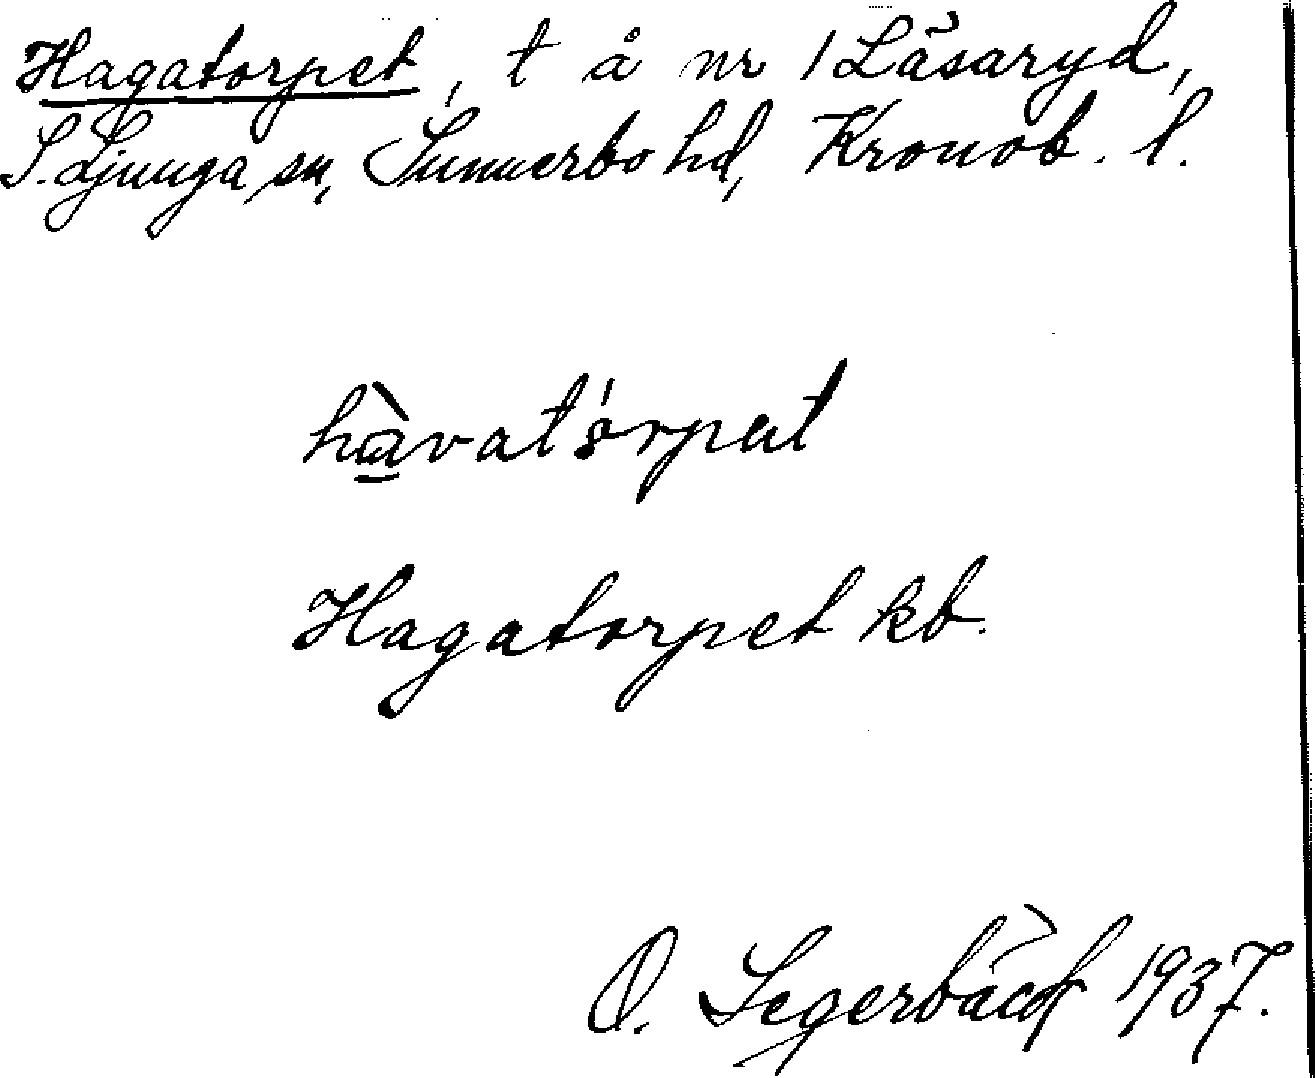 Hagatorpet, t å nr 1 Låsaryd,
S. Ljunga sn, Sunnerbo hd, Kronob. l.
hàvatórpat
Hagatorpet kb.
O. Segerbäck 1937.